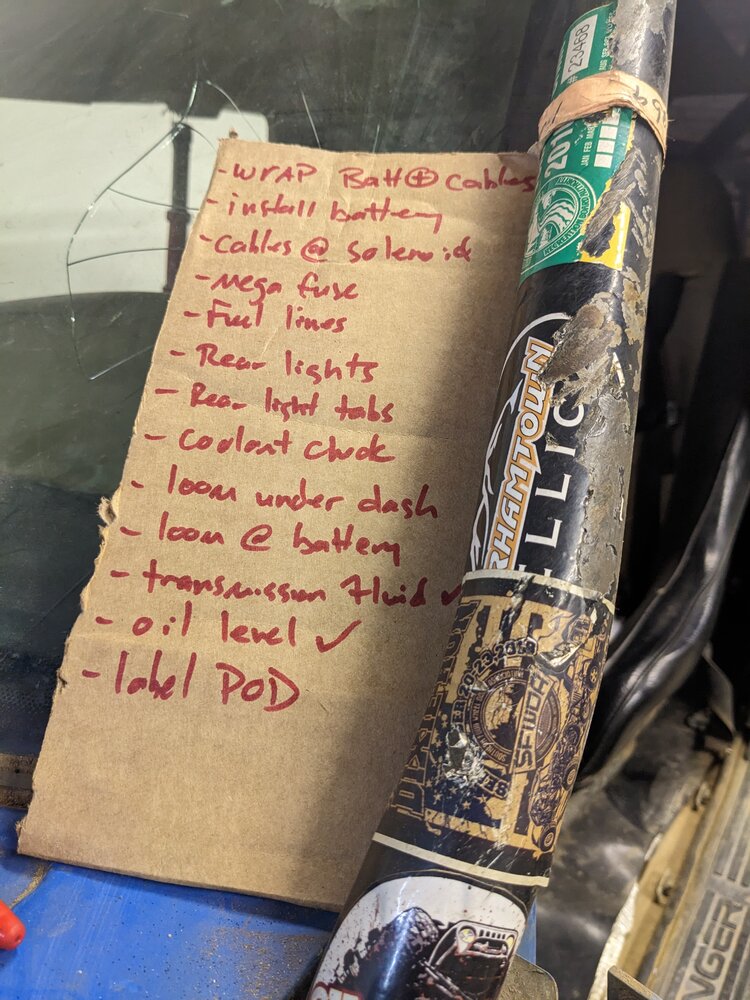 - WRAP Batt⊕ cables
- install battery
- Cables @ solenoid
- Mega fuse
- Fuel lines
- Rear lights
- Rear light tabs
- Coolant check
- loom under dash
- loom @ battery
- transmission fluid ✓
- oil level ✓
- label POD
23468
2011
JAN FEB MAR
RHAMTOWN
ELLIC
SFWDA
NGER